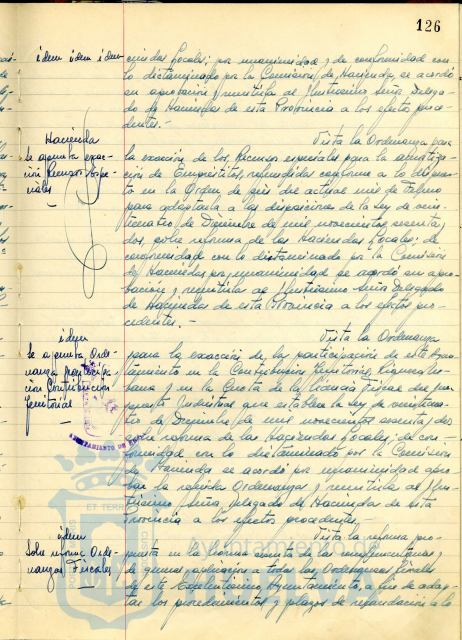 126
idem idem idem
ciendas Locales; por unanimidad y de conformidad con
lo dictaminado por la Comisión de Hacienda, se acordó
su aprobación y remitirla al Ilustrísimo Señor Delega-
do de Hacienda de esta Provincia a los efectos proce-
dentes.-
Hacienda
Se aprueba exac-
ción Recursos Espe-
ciales
Vista la Ordenanza para
la exacción de los Recursos especiales para la amortiza-
ción de Empréstitos, refundidas conforme a lo dispues-
to en la Orden de seis del actual mes de Febrero
para adaptarla a las disposiciones de la Ley de vein-
ticuatro de Diciembre de mil novecientos sesenta y
dos, sobre reforma de las Haciendas Locales; de
conformidad con lo dictaminado por la Comisión
de Hacienda, por unanimidad se acordó su apro-
bación y remitirlas al Ilustrísimo Señor Delegado
de Hacienda de esta Provincia a los efectos pro-
cedentes.-
idem
Se aprueba Orde-
nanza participa-
ción Contribución
Territorial
Vista la Ordenanza
para la exacción de las participación de este Ayun-
tamiento en la Contribución Territorial, Riqueza Ur-
bana y en la Cuota de la Licencia Fiscal del Im-
puesto Industrial que establece la Ley de veinticua-
tro de Diciembre de mil novecientos sesenta y dos
sobre reforma de las Haciendas Locales; de con-
formidad con lo dictaminado por la Comisión
de Hacienda se acordó por unanimidad apro-
bar la referida Ordenanza y remitirla al Ilus-
trísimo Señor Delegado de Hacienda de esta
Provincia a los efectos procedentes.-
AYUNTAMIENTO DE
ET TERRÆ
Ayuntamiento
idem
Sobre norma Orde-
nanzas Fiscales
Vista la reforma pro-
puesta en la norma de las complementarias
de general aplicación a todas las Ordenanzas fiscales
de este Excelentísimo Ayuntamiento, a fin de adap-
tar los procedimientos y plazos de recaudación a lo